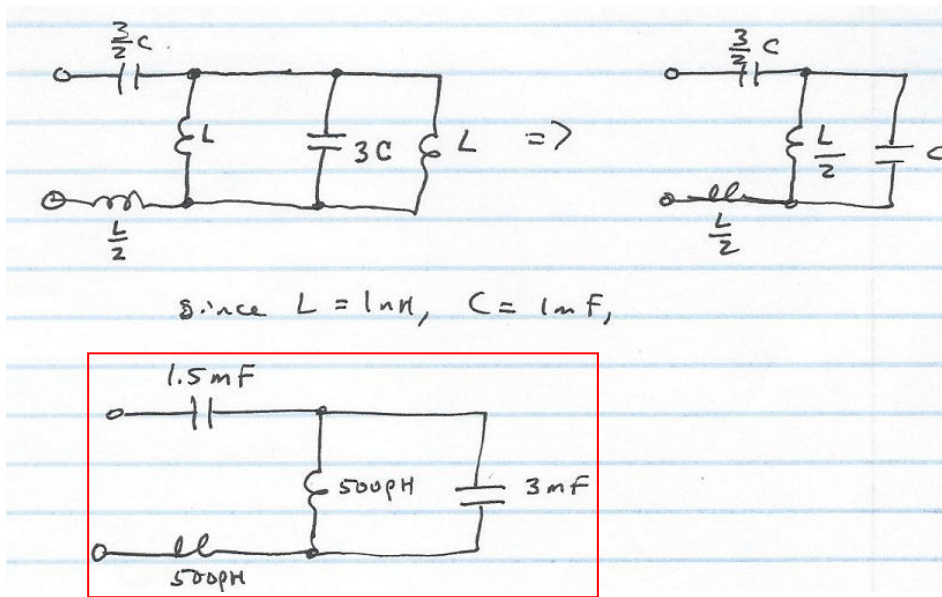 3/2 C 3/2 C
L 3C L => L/2 C
L/2 L/2
Since L = 1nH, C = 1mF,
1.5mF
500pH 3mF
500pH